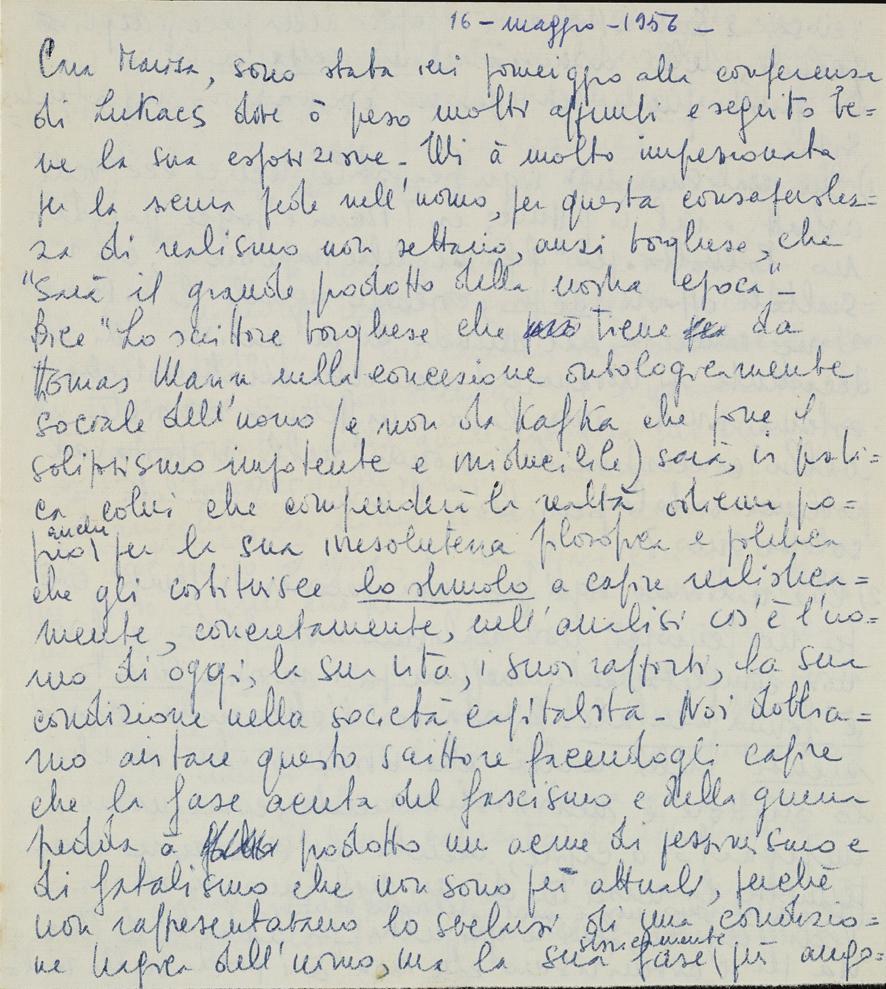 16 - maggio - 1956 -
Cara Marisa, sono stata ieri pomeriggio alla conferenza
di Lukacs dove ò preso molti appunti e seguito be=
ne la sua esposizione - Mi à molto impressionata
per la serena fede nell'uomo, per questa consapevolez=
za di realismo non settario, anzi borghese, che
"Sarà il grande prodotto della nostra epoca" -
Dice "Lo scrittore borghese che tiene da
Thomas Mann nella concezione ontologicamente
sociale dell'uomo (e non da Kafka che pone il
solipsismo impotente e) sarà, in prati=
ca colui che comprenderà la realtà odierna pro=
prio anche per la sua irrisolutezza filosofica e politica
che gli costituisce lo stimolo a capire realistica=
mente, concretamente, nell'analisi cos'è l'uo=
mo di oggi, la sua vita, i suoi rapporti, la sua
condizione nella società capitalista - Noi dobbia=
mo aiutare questo scrittore facendogli capire
che la fase acuta del fascismo e della guerra
fredda à prodotto un acme di pessimismo e
di fatalismo che non sono più attuali, perchè
non rappresentavano lo svelarsi di una condizio=
ne tragica dell'uomo, ma la sua fase storicamente più ango=